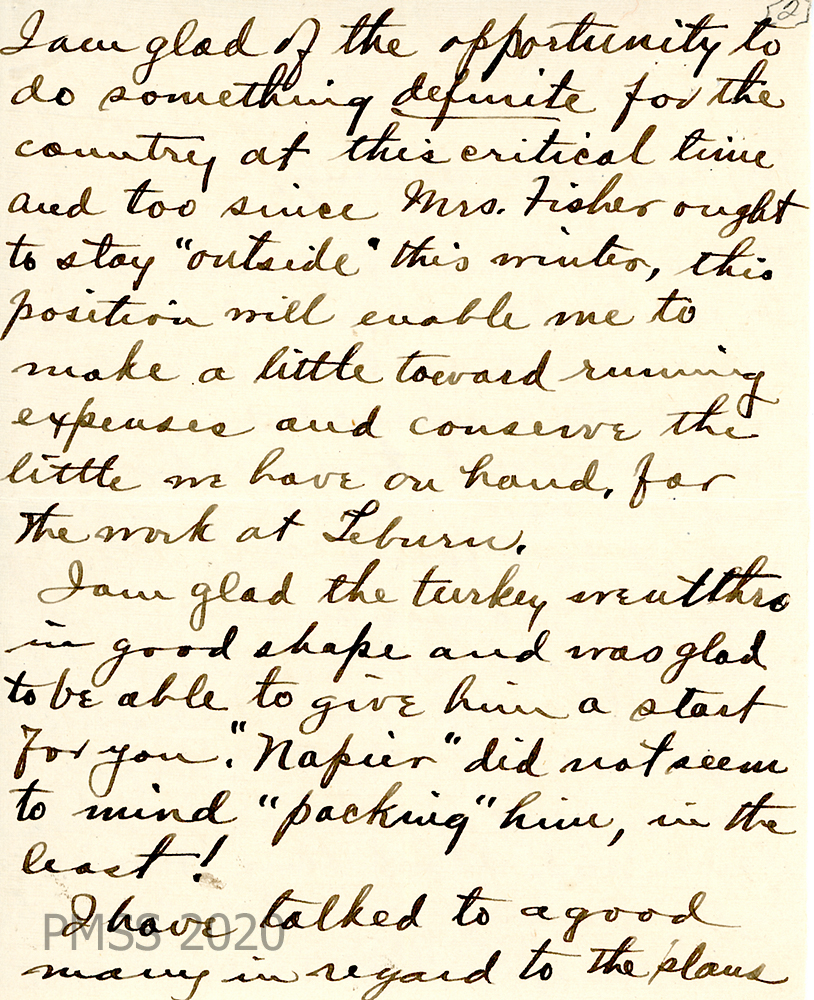 [2]
I am glad of the opportunity to
do something definite for the
country at this critical time
and too since Mrs. Fisher ought
to stay "outside" this winter, this
position will enable me to
make a little toward running
expenses and conserve the
little we have on hand, for
the work at Leburn.
I am glad the turkey went thro
in good shape and was glad
to be able to give him a start
for you. "Napier" did not seem
to mind "packing" him, in the
least!
I have talked to a good
many in regard to the plans
PMSS 2020